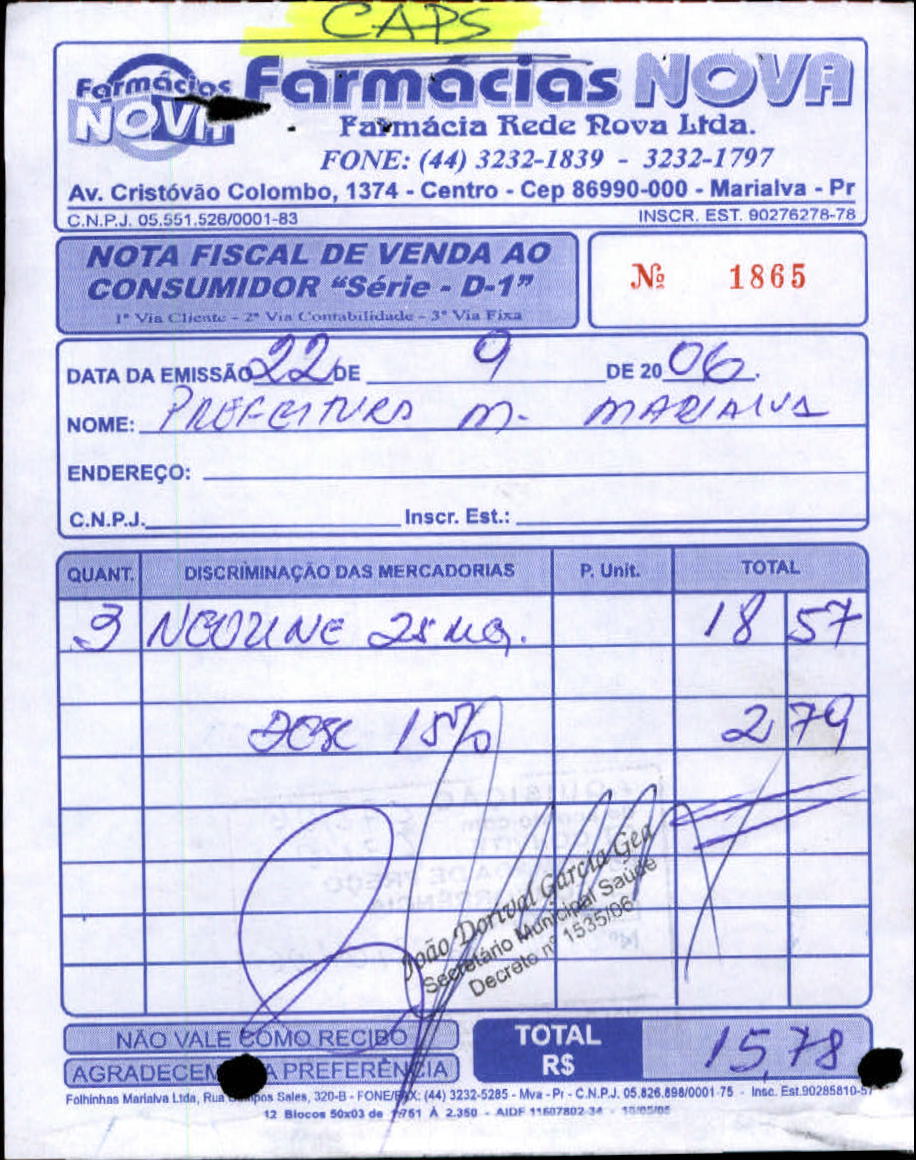 CAPS
Farmácias NOVA
Farmácias NOVA
Farmácia Rede Nova Ltda.
FONE: (44) 3232-1839 - 3232-1797
Av. Cristóvão Colombo, 1374 - Centro - Cep 86990-000 - Marialva - Pr
C.N.P.J. 05.551.526/0001-83 INSCR. EST. 90276278-78
NOTA FISCAL DE VENDA AO
CONSUMIDOR “Série - D-1”
1ª Via Cliente - 2ª Via Contabilidade - 3ª Via Fixa
Nº 1865
DATA DA EMISSÃO 22 DE 9 DE 2006.
NOME: PREFEITURA M. MARIALVA
ENDEREÇO:
C.N.P.J. Inscr. Est.:
QUANT. DISCRIMINAÇÃO DAS MERCADORIAS P. Unit. TOTAL
3 NEOZINE 25 MG. 18 57
DESC 15% 2 79
João Dorival Garcia Gea
Secretário Municipal Saúde
Decreto nº 1535/06
NÃO VALE COMO RECIBO
AGRADECEMOS A PREFERÊNCIA
TOTAL
R$ 15,78
Folhinhas Marialva Ltda, Rua Sales, 320-B - FONE/FAX: (44) 3232-5285 - Mva - Pr - C.N.P.J. 05.826.898/0001-75 - Insc. Est.90285810-57
12 Blocos 50x03 de 1.751 À 2.350 - AIDF 11607802-34 -